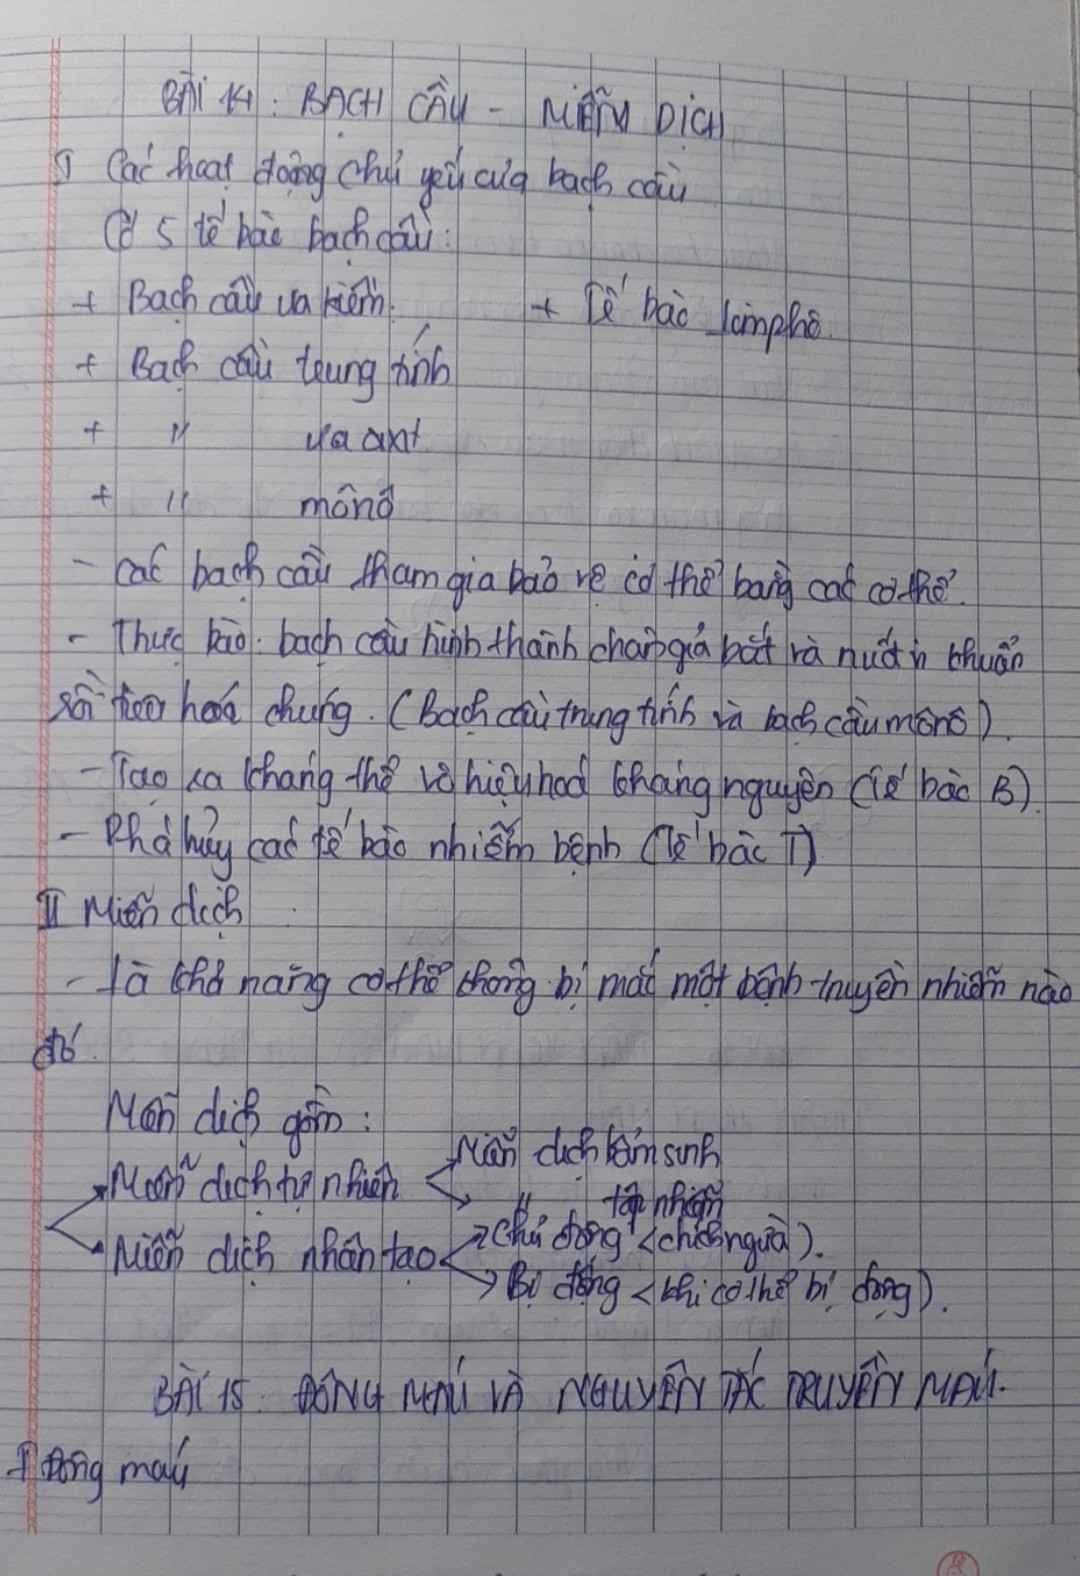 BÀI 14: BẠCH CẦU - MIỄN DỊCH
I Các hoạt động chủ yếu của bạch cầu
Có 5 tế bào bạch cầu:
+ Bạch cầu ưa kiềm. + Tế bào limphô.
+ Bạch cầu trung tính
+ " ưa axit
+ " mônô
- Các bạch cầu tham gia bảo vệ cơ thể bằng các cơ thể.
- Thực bào: bạch cầu hình thành chân giả bắt và nuốt vi khuẩn
rồi tiêu hoá chúng. (Bạch cầu trung tính và bạch cầu mônô).
- Tạo ra kháng thể vô hiệu hoá kháng nguyên (Tế bào B).
- Phá hủy các tế bào nhiễm bệnh (Tế bào T)
II Miễn dịch
- Là khả năng cơ thể không bị mắc một bệnh truyền nhiễm nào
đó.
Miễn dịch gồm:
Miễn dịch bẩm sinh
Miễn dịch tự nhiên
" tập nhiễm
Chủ động <chích ngừa).
Miễn dịch nhân tạo
Bị động <khi cơ thể bị động).
BÀI 15: ĐÔNG MÁU VÀ NGUYÊN TẮC TRUYỀN MÁU.
I Đông máu